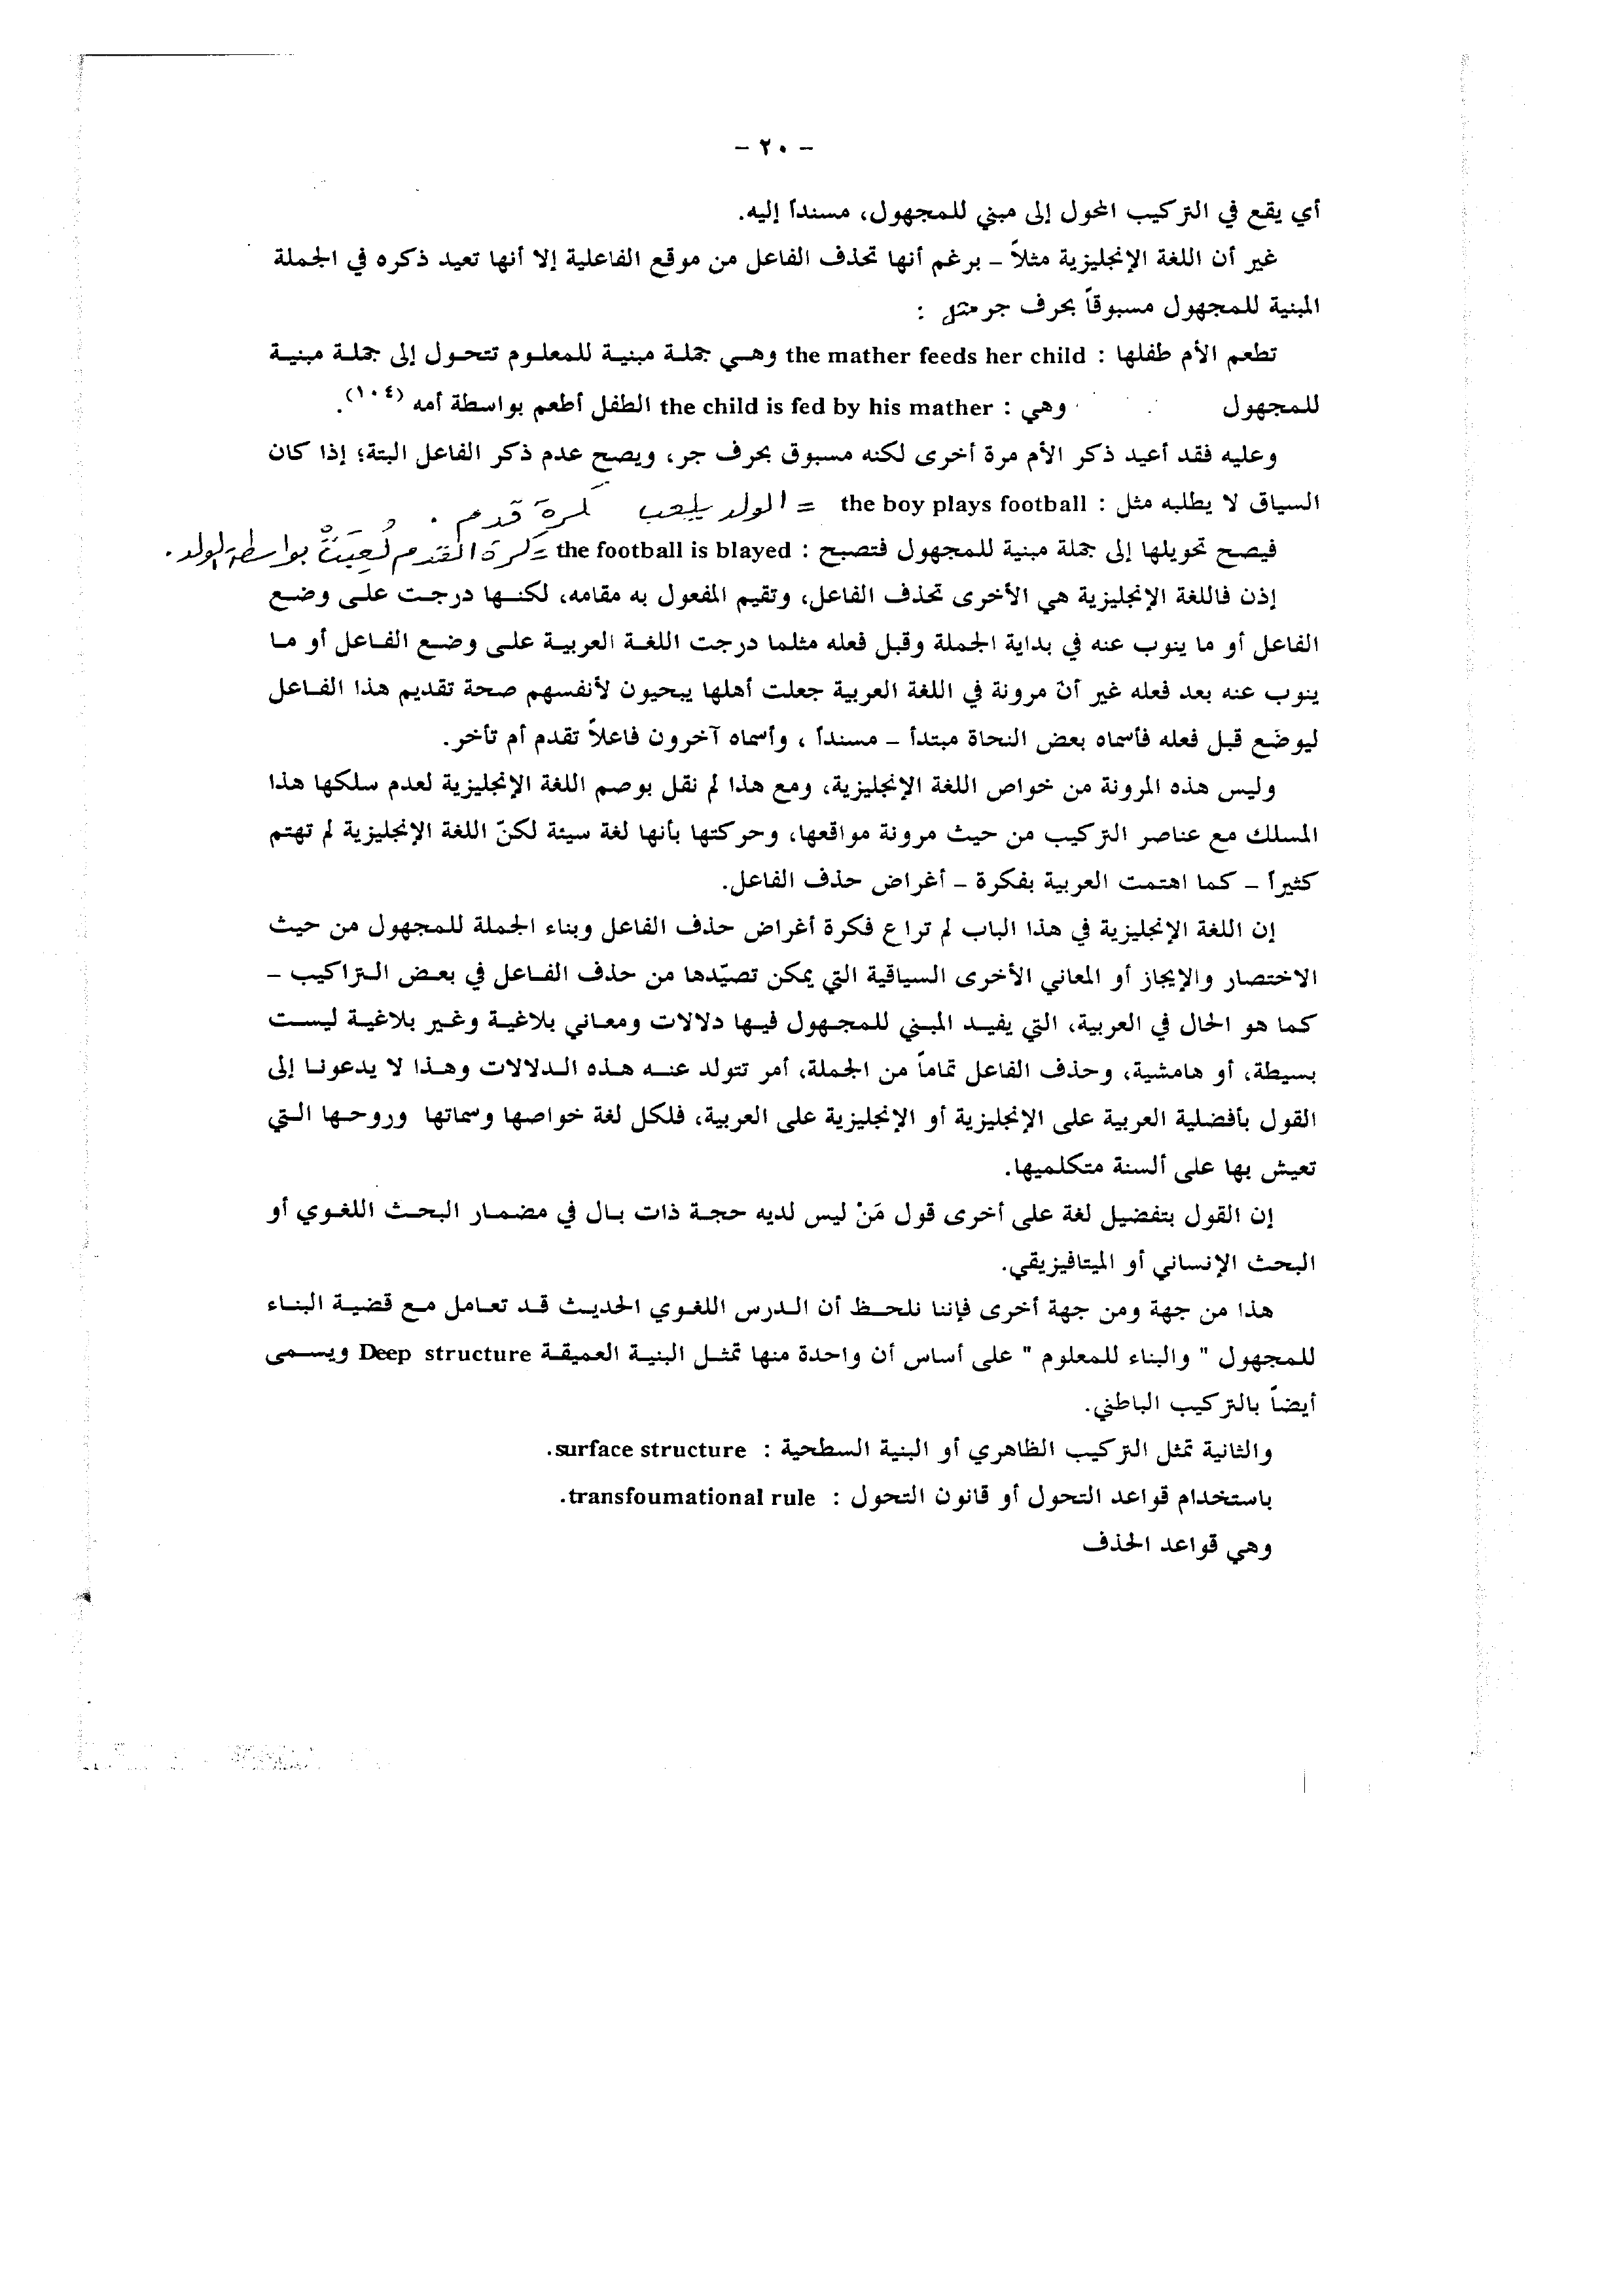 - ٢٠ -
أي يقع في التركيب المحول إلى مبني للمجهول، مسنداً إليه.
غير أن اللغة الإنجليزية مثلاً – برغم أنها تحذف الفاعل من موقع الفاعلية إلا أنها تعيد ذكره في الجملة
المبنية للمجهول مسبوقاً بحرف جر مثل :
تطعم الأم طفلها : the mather feeds her child وهي جملة مبنية للمعلوم تتحول إلى جملة مبنية
للمجهول وهي : the child is fed by his mather الطفل أطعم بواسطة أمه (١٠٤).
وعليه فقد أعيد ذكر الأم مرة أخرى لكنه مسبوق بحرف جر، ويصح عدم ذكر الفاعل البتة؛ إذا كان
السياق لا يطلبه مثل : the boy plays football = الولد يلعب كرة قدم .
فيصح تحويلها إلى جملة مبنية للمجهول فتصبح : the football is blayed = كرة القدم لُعِبَتْ بواسطة الولد.
إذن فاللغة الإنجليزية هي الأخرى تحذف الفاعل، وتقيم المفعول به مقامه، لكنها درجت على وضع
الفاعل أو ما ينوب عنه في بداية الجملة وقبل فعله مثلما درجت اللغة العربية على وضع الفاعل أو ما
ينوب عنه بعد فعله غير أن مرونة في اللغة العربية جعلت أهلها يبحيون لأنفسهم صحة تقديم هذا الفاعل
ليوضَع قبل فعله فأسماه بعض النحاة مبتدأ – مسنداً ، وأسماه آخرون فاعلاً تقدم أم تأخر.
وليس هذه المرونة من خواص اللغة الإنجليزية، ومع هذا لم نقل بوصم اللغة الإنجليزية لعدم سلكها هذا
المسلك مع عناصر التركيب من حيث مرونة مواقعها، وحركتها بأنها لغة سيئة لكنّ اللغة الإنجليزية لم تهتم
كثيراً – كما اهتمت العربية بفكرة – أغراض حذف الفاعل.
إن اللغة الإنجليزية في هذا الباب لم تراع فكرة أغراض حذف الفاعل وبناء الجملة للمجهول من حيث
الاختصار والإيجاز أو المعاني الأخرى السياقية التي يمكن تصيّدها من حذف الفاعل في بعض التراكيب –
كما هو الحال في العربية، التي يفيد المبني للمجهول فيها دلالات ومعاني بلاغية وغير بلاغية ليست
بسيطة، أو هامشية، وحذف الفاعل تماماً من الجملة، أمر تتولد عنه هذه الدلالات وهذا لا يدعونا إلى
القول بأفضلية العربية على الإنجليزية أو الإنجليزية على العربية، فلكل لغة خواصها وسماتها وروحها التي
تعيش بها على ألسنة متكلميها.
إن القول بتفضيل لغة على أخرى قول مَنْ ليس لديه حجة ذات بال في مضمار البحث اللغوي أو
البحث الإنساني أو الميتافيزيقي.
هذا من جهة ومن جهة أخرى فإننا نلحظ أن الدرس اللغوي الحديث قد تعامل مع قضية البناء
للمجهول " والبناء للمعلوم " على أساس أن واحدة منها تمثل البنية العميقة Deep structure ويسمى
أيضاً بالتركيب الباطني.
والثانية تمثل التركيب الظاهري أو البنية السطحية : surface structure.
باستخدام قواعد التحول أو قانون التحول : transfoumational rule.
وهي قواعد الحذف